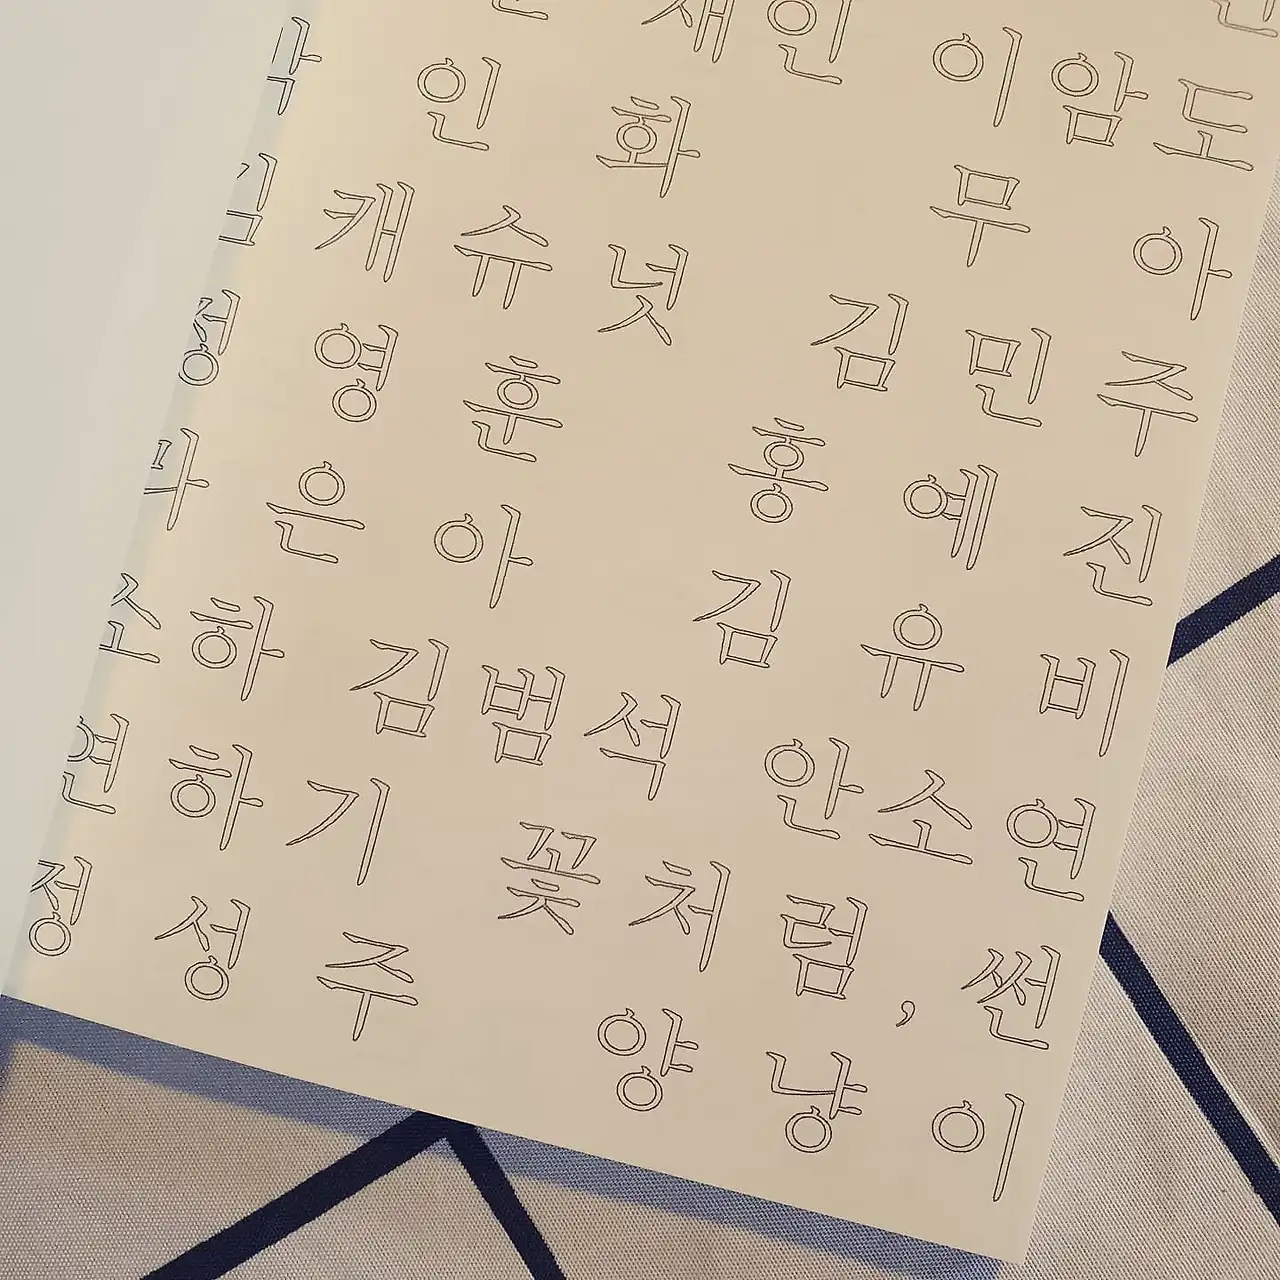 재인 이암도
인 화 무 아
캐슈넛 김민주
정영훈 홍예진
마은아 김유비
소하 김범석 안소연
연하기 꽃처럼, 썬
정성주 양냥이